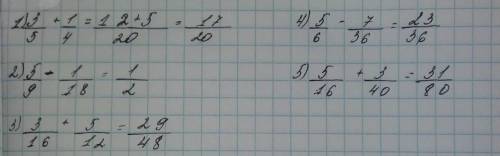 1) 3/5 + 1/4 = 12+5/20 = 17/20
2) 5/9 - 1/18 = 1/2
3) 3/16 + 5/12 = 29/48
4) 5/6 - 7/36 = 23/36
5) 5/16 + 3/40 = 31/80